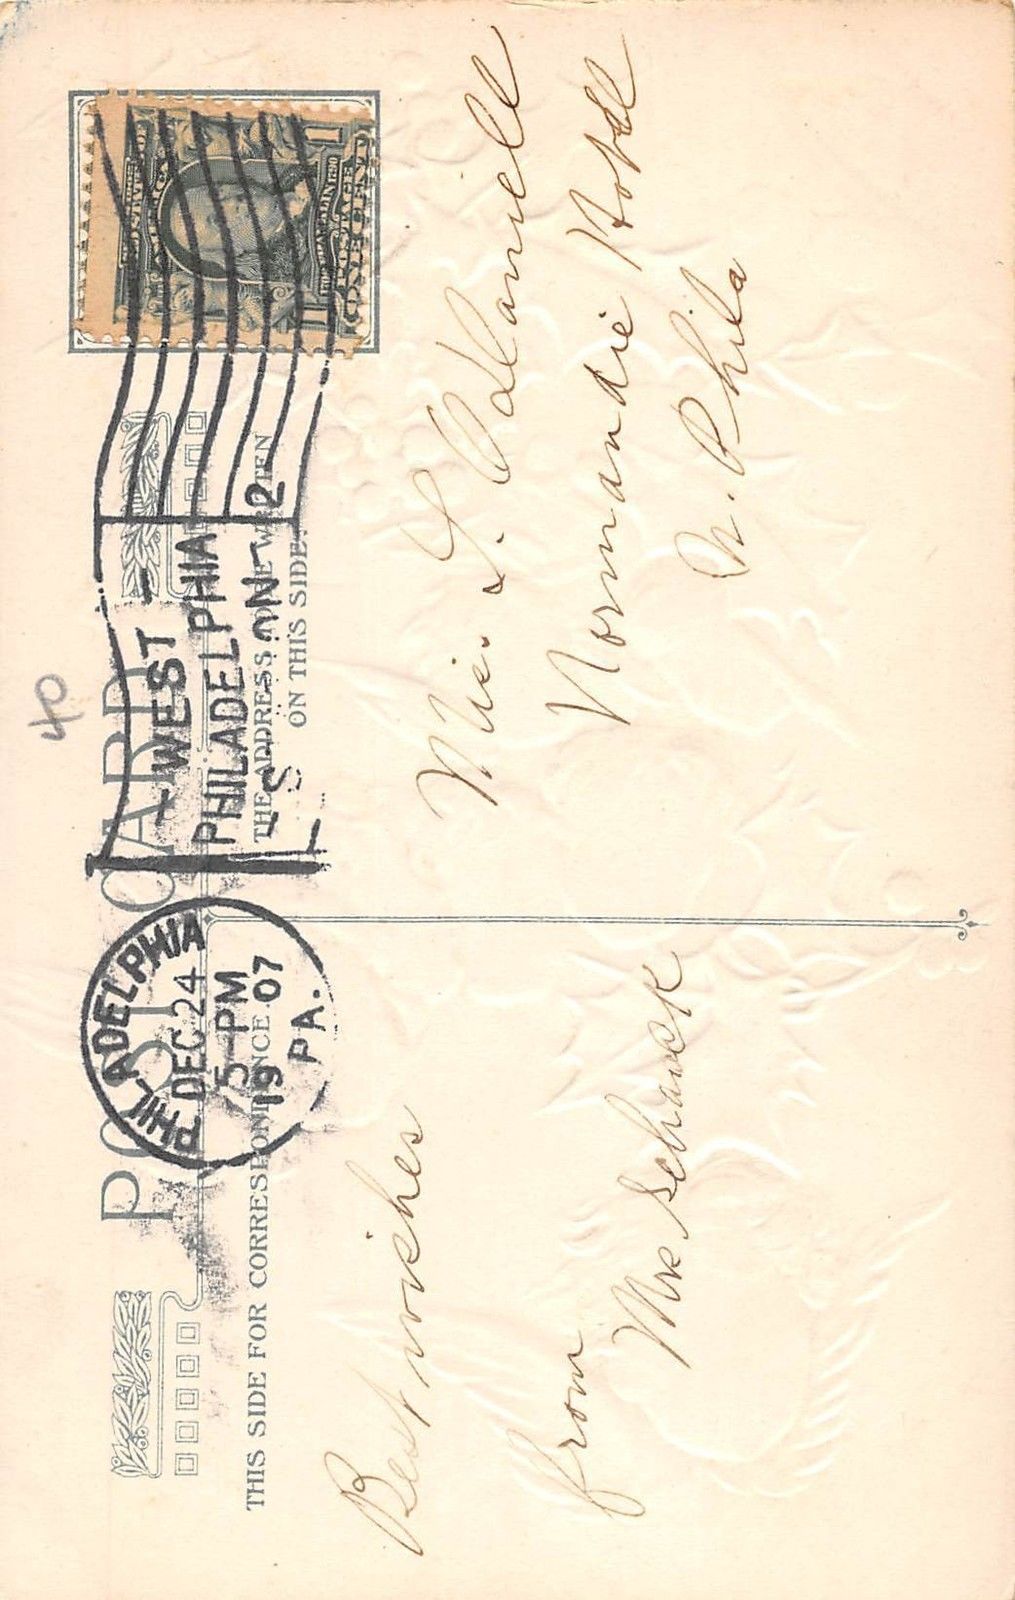 POST CARD
THIS SIDE FOR CORRESPONDENCE
THE ADDRESS TO BE WRITTEN
ON THIS SIDE.
PHILADELPHIA
DEC 24
5-PM
1907
PA.
-WEST-
PHILADELPHIA
FRANKLIN
POSTAGE
ONE CENT
40
Best wishes
from
Mrs Schauck
Normandie Hotel
W. Phila